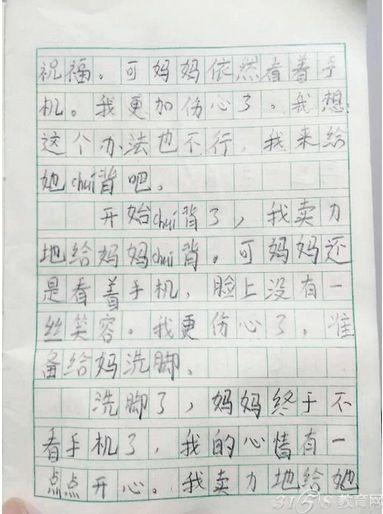 祝福。可妈妈依然看着手
机。我更加伤心了。我想
这个办法也不行，我来给
她chuí背吧。
开始chuí背了，我卖力
地给妈妈chuí背。可妈妈还
是看着手机，脸上没有一
丝笑容。我更伤心了，准
备给妈洗脚。
洗脚了，妈妈终于不
看手机了，我的心情有一
点点开心。我卖力地给她
3158教育网